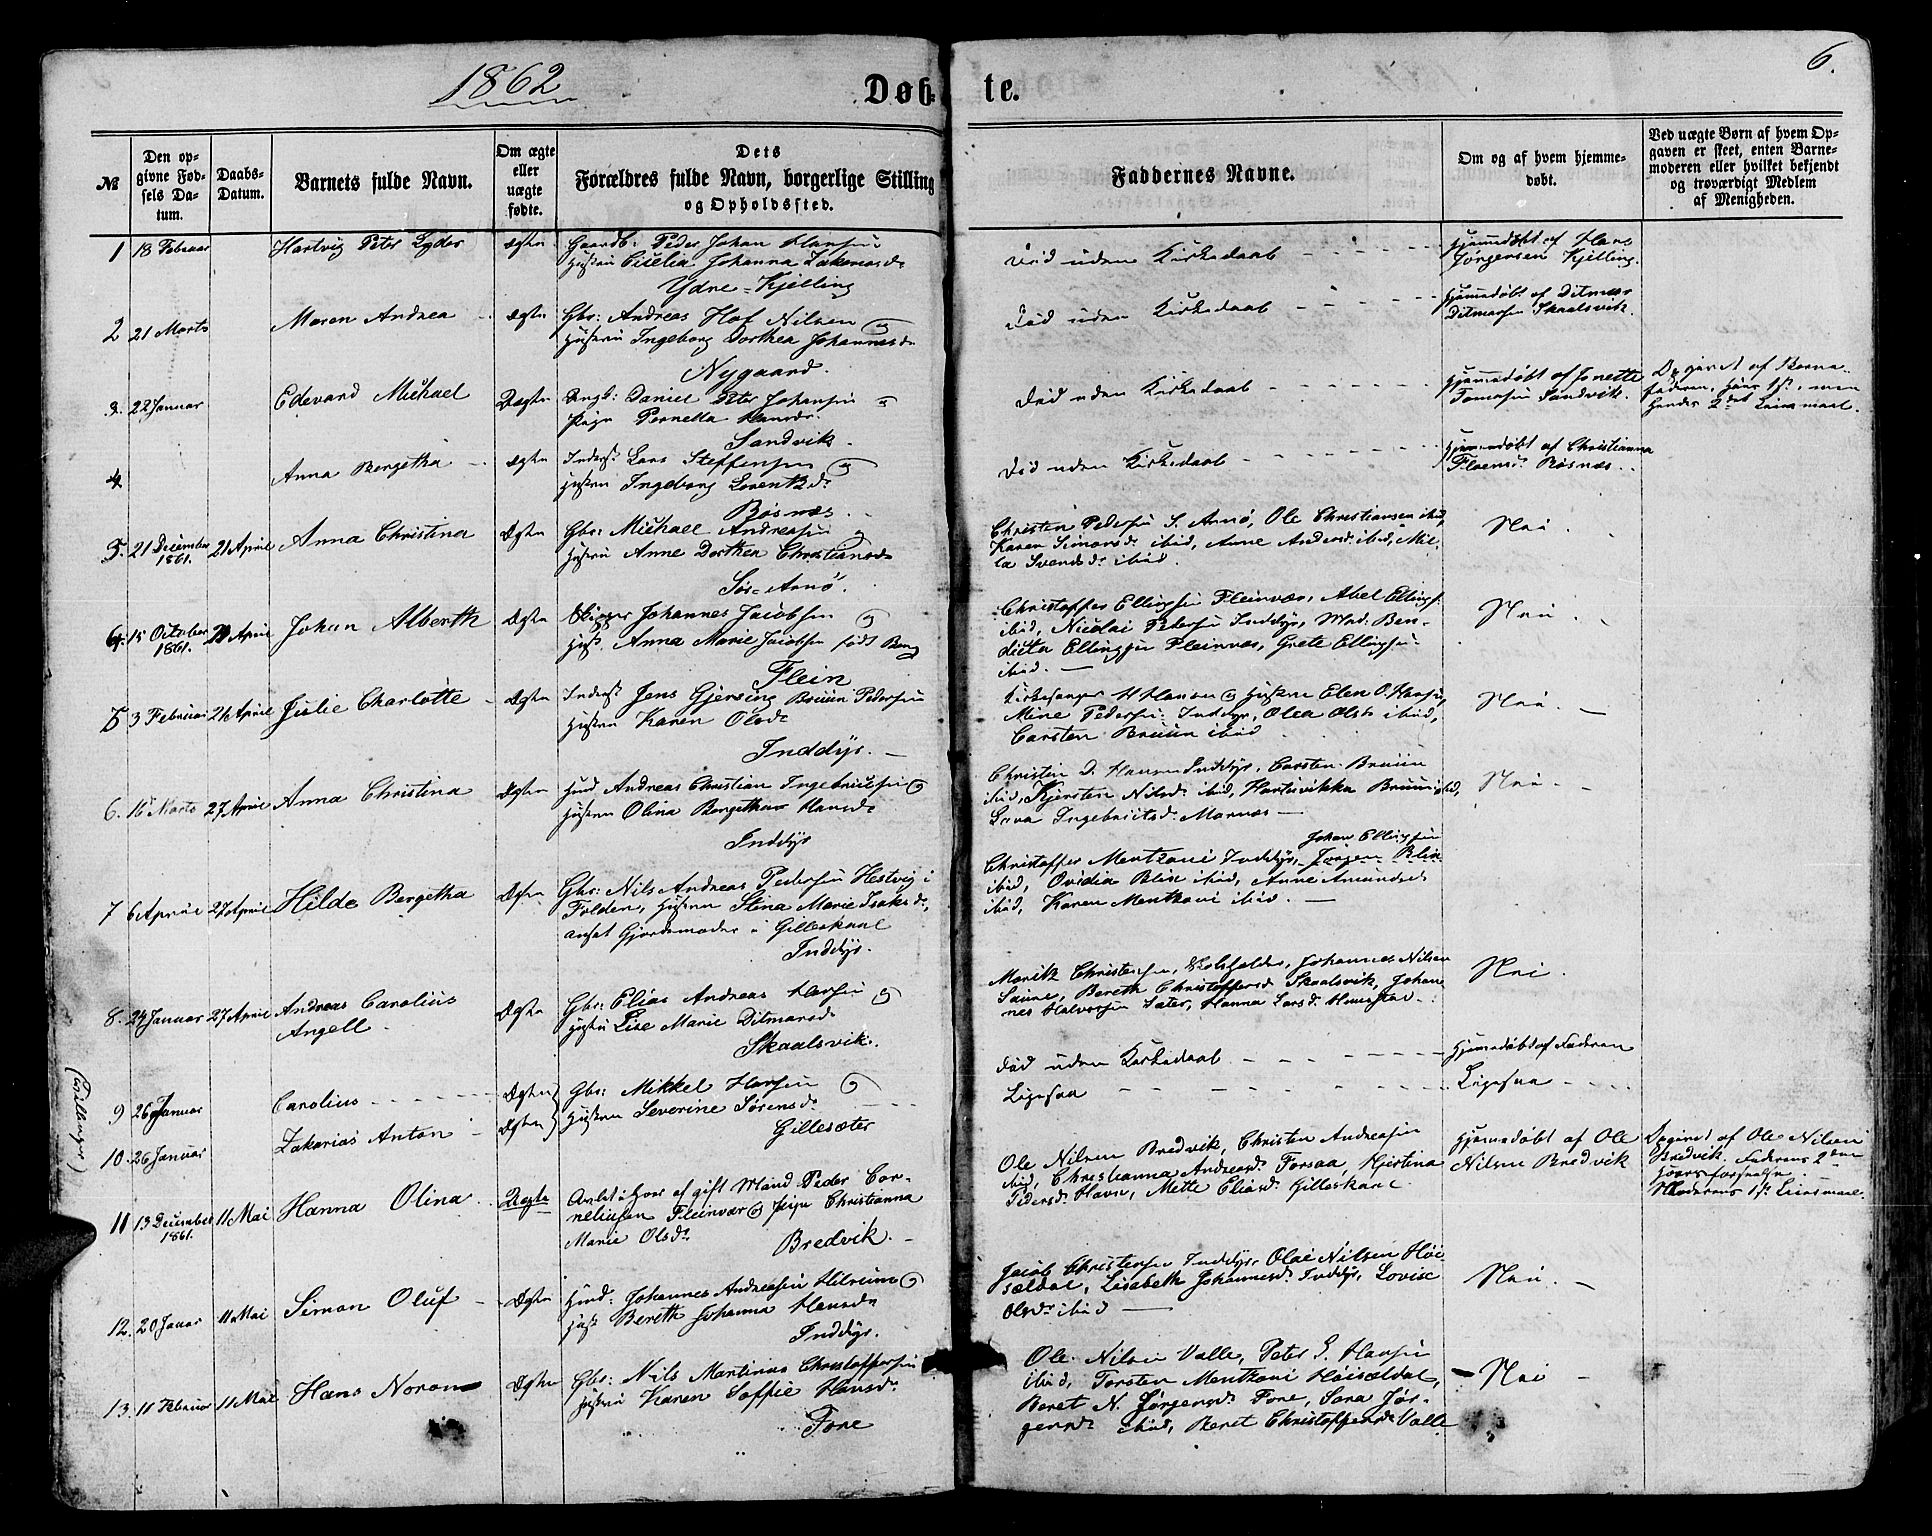 1862
Døb-
te.
6.
№
Den op-
givne Fød-
sels Da-
tum.
Daabs-
Datum.
Barnets fulde Navn.
Om ægte
eller
uægte
fødte.
Dets
Forældres fulde Navn, borgerlige Stilling
og Opholdssted.
Faddernes Navne.
Om og af hvem hjemme-
døbt.
Ved uægte Børn af hvem Op-
gaven er skeet, enten Barne-
moderen eller hvilket bekjendt
og troværdigt Medlem
af Menigheden.
1 18 Februar Hartvig Peter Lyder Ægte
Gaardb: Peder Johan Hansen
Hustru Cicelia Johanna Zakariasd.
Ydre-Kjelling
Død uden Kirkedaab
Hjemmedøbt af Hans
Jørgensen Kjelling.
2 21 Marts Maren Andrea Ægte
Gbr: Andreas Hof Nilsen
Hustru Ingeborg Dorthea Johannesd.
Nygaard.
Død uden Kirkedaab
Hjemmedøbt af Ditmar
Ditmarsen Skaalsvik.
3. 22 Januar Edevard Michael Uægte
Ungk: Daniel Peter Johansen
Pige Pernella Hansd.
Sandvik.
Død uden Kirkedaab
Hjemmedøbt af Jonette
Tomasen Sandvik.
Opgivet af Barne-
faderen, hans 1ste, men
hendes 2det Leiermaal.
4. Anna Bergetha Ægte
Inderst Lars Steffensen
Hustru Ingeborg Lorentzd.
Bøsnæs.
Død uden Kirkedaab
Hjemmedøbt af Christianna
Bøsnæs.
5. 21 December 21 April Anna Christina Ægte
1861.
Gbr: Michael Andreasen
Hustru Anne Dorthea Christiansd.
Sør-Arnø.
Christen Pedersen S. Arnø, Ole Christiansen ibid,
Karen Simonsd. ibid, Anne Andersd. ibid, Mil-
la Svendsd. ibid.
Nei.
6. 15 October April Johan Alberth Ægte
1861.
Skipper Johannes Jacobsen
Hust. Anna Marie Jacobsen født Berg
Flein
Christoffer Ellingsen Fleinvær, Abel Ellings.
ibid, Nicolai Petersen Inddyr, Mad. Ben-
dicta Ellingsen Fleinvær, Grete Ellingsen
ibid.
Nei.
5 3 Februar 21 April Julie Charlotte Ægte
Inderst Jens Gjersing Bruun Pedersen
Hustru Karen Olsd.
Inddyr.
Kirkesanger H Hansen & Hustru Elen O. Hansen,
Mine Pedersen Inddyr, Olea Olsd. ibid,
Carsten Bruun ibid
Nei.
6. 16 Marts 27 April Anna Christina Ægte
Huusd Andreas Christian Ingebrigtsen
Hustru Olina Bergethea Hansd.
Inddyr
Christen D. Hansen Inddyr, Carsten Bruun
ibid, Kjersten Nilsd. ibid, Hartvikka Bruun ibid,
Lava Ingebrigtsd. Marnæs
Nei.
7 6 April 27 April Hilde Bergetha Ægte
Gbr: Nils Andreas Pedersen Hestvig i
Folden, Hustru Stina Marie Isaksd.,
ansat Gjordemoder i Gilleskaal
Inddyr.
Johan Ellingsen
Christoffer Mentzoni Inddyr, Jørgen Blix
ibid, Ovidia Blix ibid, Anne Amundsd.
ibid, Karen Mentzoni ibid.
8. 24 Januar 27 April Andreas Carolius
Angell
Ægte
Gbr: Elias Andreas Hansen
Hustru Lise Marie Ditmarsd.
Skaalsvik.
Marith Christensen, Johannes Nilsen
Saura, Bereth Christoffersd. Skaalsvik, Johan-
nes Halvorsen Sæter, Hanna Larsd.
Nei.
(Tvillinger)
9 26 Januar Carolius Ægte
10. 26 Januar Zakarias Anton Ægte
Gbr: Mikkel Hansen
Hustru Severine Sørensd.
Gillesæter
Død uden Kirkedaab
Ligesaa
Hjemmedøbt af Faderen
Ligesaa
11 13 December 11 Mai Hanna Olina Uægte
1861.
Avlet i Hoer af gift Mand Peder Cor-
neliusen Fleinvær & Pige Christianna
Marie Olsd.
Bredvik.
Ole Nilsen Bredvik, Christen Andreasen
ibid, Christianna Andreasd. Forsaa, Kjerstina
Pedersd. Havn, Mette Eliasd. Gilleskaal
Hjemmedøbt af Ole
Nilsen Bredvik
Opgivet af Ole Nilsen
Bredvik. Faderens 2den
Hoersforseelse,
Moderens 1ste Leiermaal.
12. 20 Januar 11 Mai Simon Oluf Ægte
Huusd: Johannes Andreasen
Hust Bereth Johanna Hansd.
Inddyr.
Jacob Christensen Inddyr, Olai Nilsen Høi-
sældal, Lisabeth Johannesd. Inddyr, Lovise
Olsd. ibid
Nei.
13. 11 Februar 11 Mai Hans Noran Ægte
Gbr: Nils Martinus Christoffersen
Hustru Karen Soffie Hansd.
Fore
Ole Nilsen Valle, Peter S. Hansen
ibid, Torsten Mentzoni Høisældal,
Beret N. Jørgensd. Fore, Sara Jør-
gensd. ibid, Beret Christoffersd. Valle
Nei